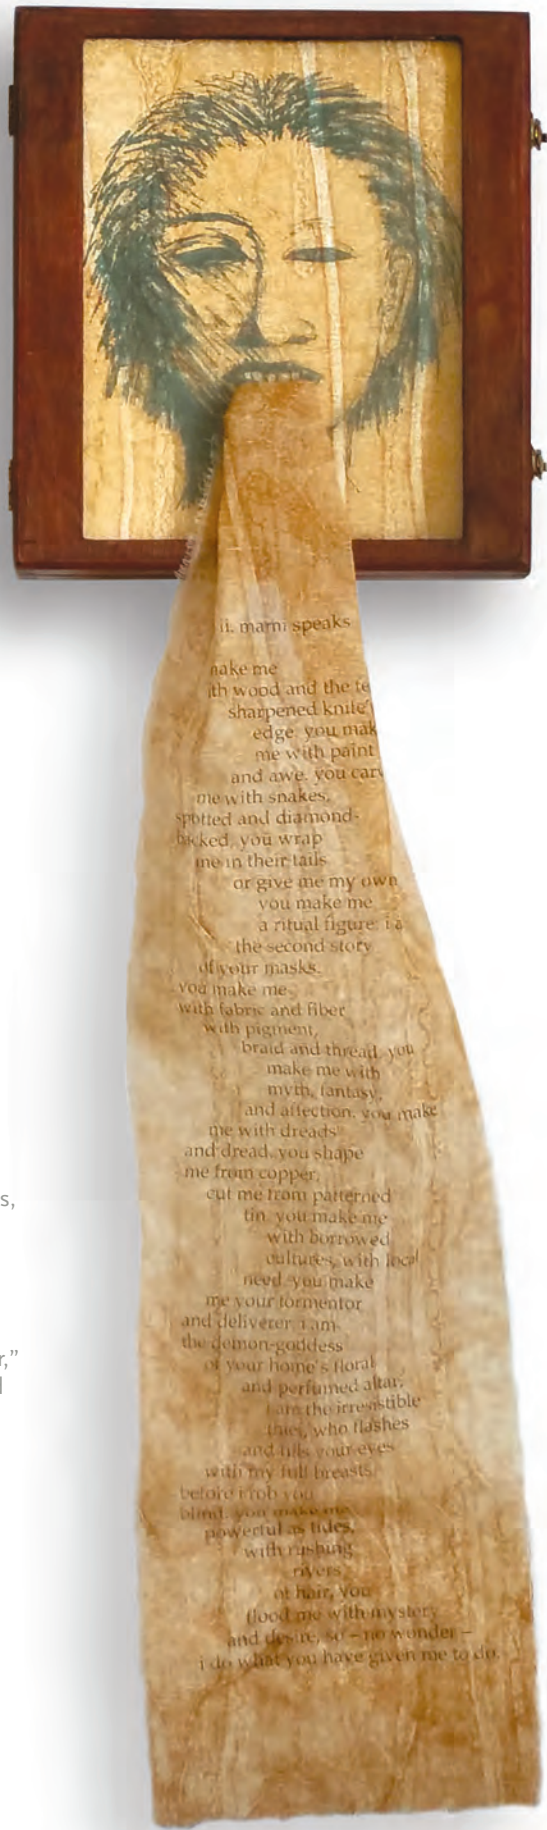 ii. mami speaks
make me
ith wood and the te
sharpened knife'
edge. you mak
me with paint
and awe. you carv
me with snakes,
spotted and diamond-
backed, you wrap
me in their tails
or give me my own
you make me
a ritual figure: i a
the second story
of your masks.
you make me
with fabric and fiber
with pigment,
braid and thread, you
make me with
myth, fantasy,
and affection. you make
me with dreads
and dread, you shape
me from copper,
cut me from patterned
tin. you make me
with borrowed
cultures, with local
need. you make
me your tormentor
and deliverer. i am
the demon-goddess
of your home's floral
and perfumed altar.
i am the irresistible
thief, who flashes
and fills your eyes
with my full breasts
before i rob you
blind. you make me
powerful as tides,
with rushing
rivers
of hair, you
flood me with mystery
and desire, so – no wonder –
i do what you have given me to do.
s,
r,”